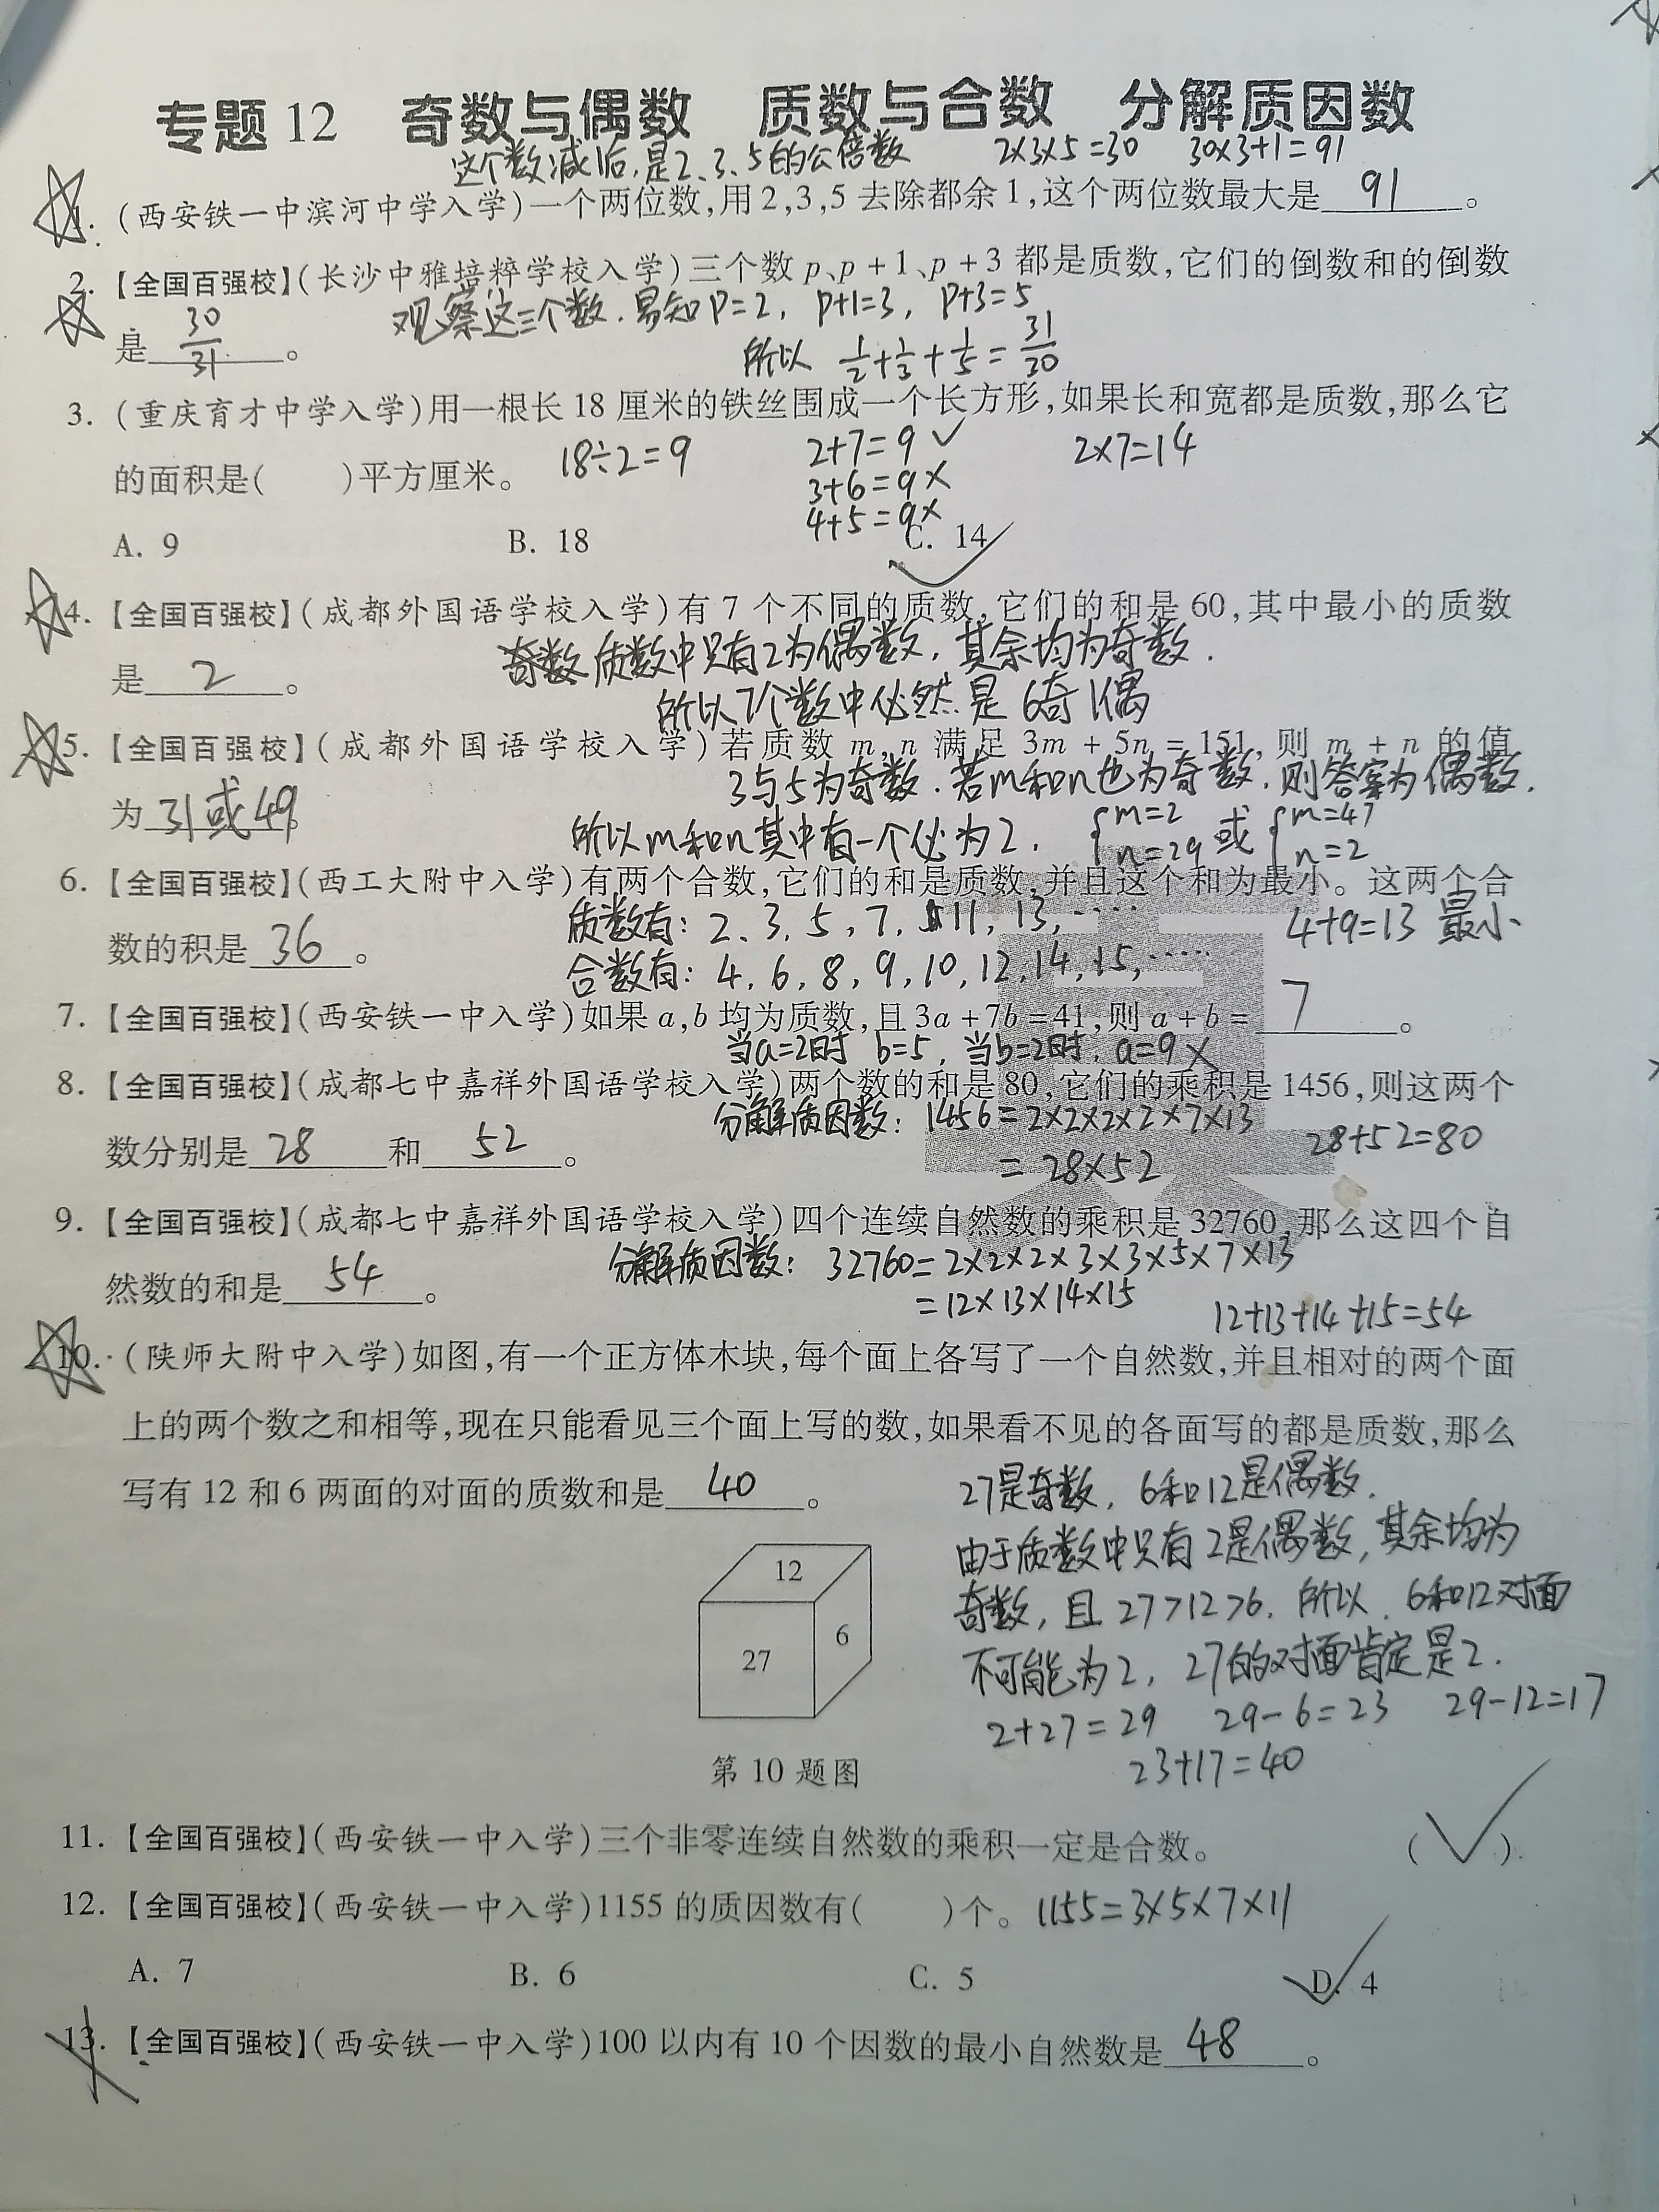 专题12 奇数与偶数 质数与合数 分解质因数
这个数减1后,是2、3、5的公倍数 2×3×5=30 30×3+1=91
1. (西安铁一中滨河中学入学)一个两位数,用2,3,5去除都余1,这个两位数最大是 91 。
2. 【全国百强校】(长沙中雅培粹学校入学)三个数p、p+1、p+3都是质数,它们的倒数和的倒数
观察这三个数,易知P=2, P+1=3, P+3=5
是 30/31 。
所以 1/2+1/3+1/5=31/30
3. (重庆育才中学入学)用一根长18厘米的铁丝围成一个长方形,如果长和宽都是质数,那么它
的面积是( )平方厘米。 18÷2=9 2+7=9✓ 2×7=14
3+6=9×
4+5=9×
A. 9 B. 18 C. 14 ✓
4. 【全国百强校】(成都外国语学校入学)有7个不同的质数,它们的和是60,其中最小的质数
奇数 质数中只有2为偶数,其余均为奇数.
是 2 。
所以7个数中必然是6奇1偶
5. 【全国百强校】(成都外国语学校入学)若质数m,n满足3m+5n=151,则m+n的值
3与5为奇数.若m和n也为奇数,则答案为偶数.
为 31或49 。
所以m和n其中有一个必为2. {m=2 n=29 或 {m=47 n=2
6. 【全国百强校】(西工大附中入学)有两个合数,它们的和是质数,并且这个和为最小。这两个合
质数有: 2、3、5,7,11,13,…… 4+9=13 最小
数的积是 36 。
合数有: 4,6,8,9,10,12,14,15,……
7. 【全国百强校】(西安铁一中入学)如果a,b均为质数,且3a+7b=41,则a+b= 7 。
当a=2时 b=5, 当b=2时, a=9×
8. 【全国百强校】(成都七中嘉祥外国语学校入学)两个数的和是80,它们的乘积是1456,则这两个
分解质因数: 1456=2×2×2×2×7×13
数分别是 28 和 52 。 28+52=80
=28×52
9. 【全国百强校】(成都七中嘉祥外国语学校入学)四个连续自然数的乘积是32760,那么这四个自
分解质因数: 32760=2×2×2×3×3×5×7×13
然数的和是 54 。
=12×13×14×15 12+13+14+15=54
10. (陕师大附中入学)如图,有一个正方体木块,每个面上各写了一个自然数,并且相对的两个面
上的两个数之和相等,现在只能看见三个面上写的数,如果看不见的各面写的都是质数,那么
写有12和6两面的对面的质数和是 40 。
27是奇数, 6和12是偶数.
由于质数中只有2是偶数,其余均为
奇数,且27>12>6. 所以,6和12对面
不可能为2, 27的对面肯定是2.
2+27=29 29-6=23 29-12=17
23+17=40
12
27
6
第10题图
11. 【全国百强校】(西安铁一中入学)三个非零连续自然数的乘积一定是合数。 (✓)
12. 【全国百强校】(西安铁一中入学)1155的质因数有( )个。 1155=3×5×7×11
A. 7 B. 6 C. 5 D. 4 ✓
13. 【全国百强校】(西安铁一中入学)100以内有10个因数的最小自然数是 48 。